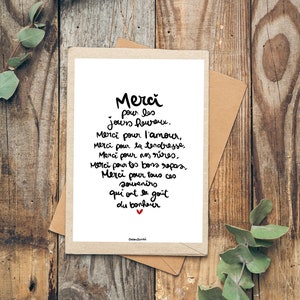 Merci
pour les
jours heureux.
Merci pour l'amour,
Merci pour la tendresse
Merci pour nos rires,
Merci pour les bons repas,
Merci pour tous ces
souvenirs
qui ont le goût
du bonheur